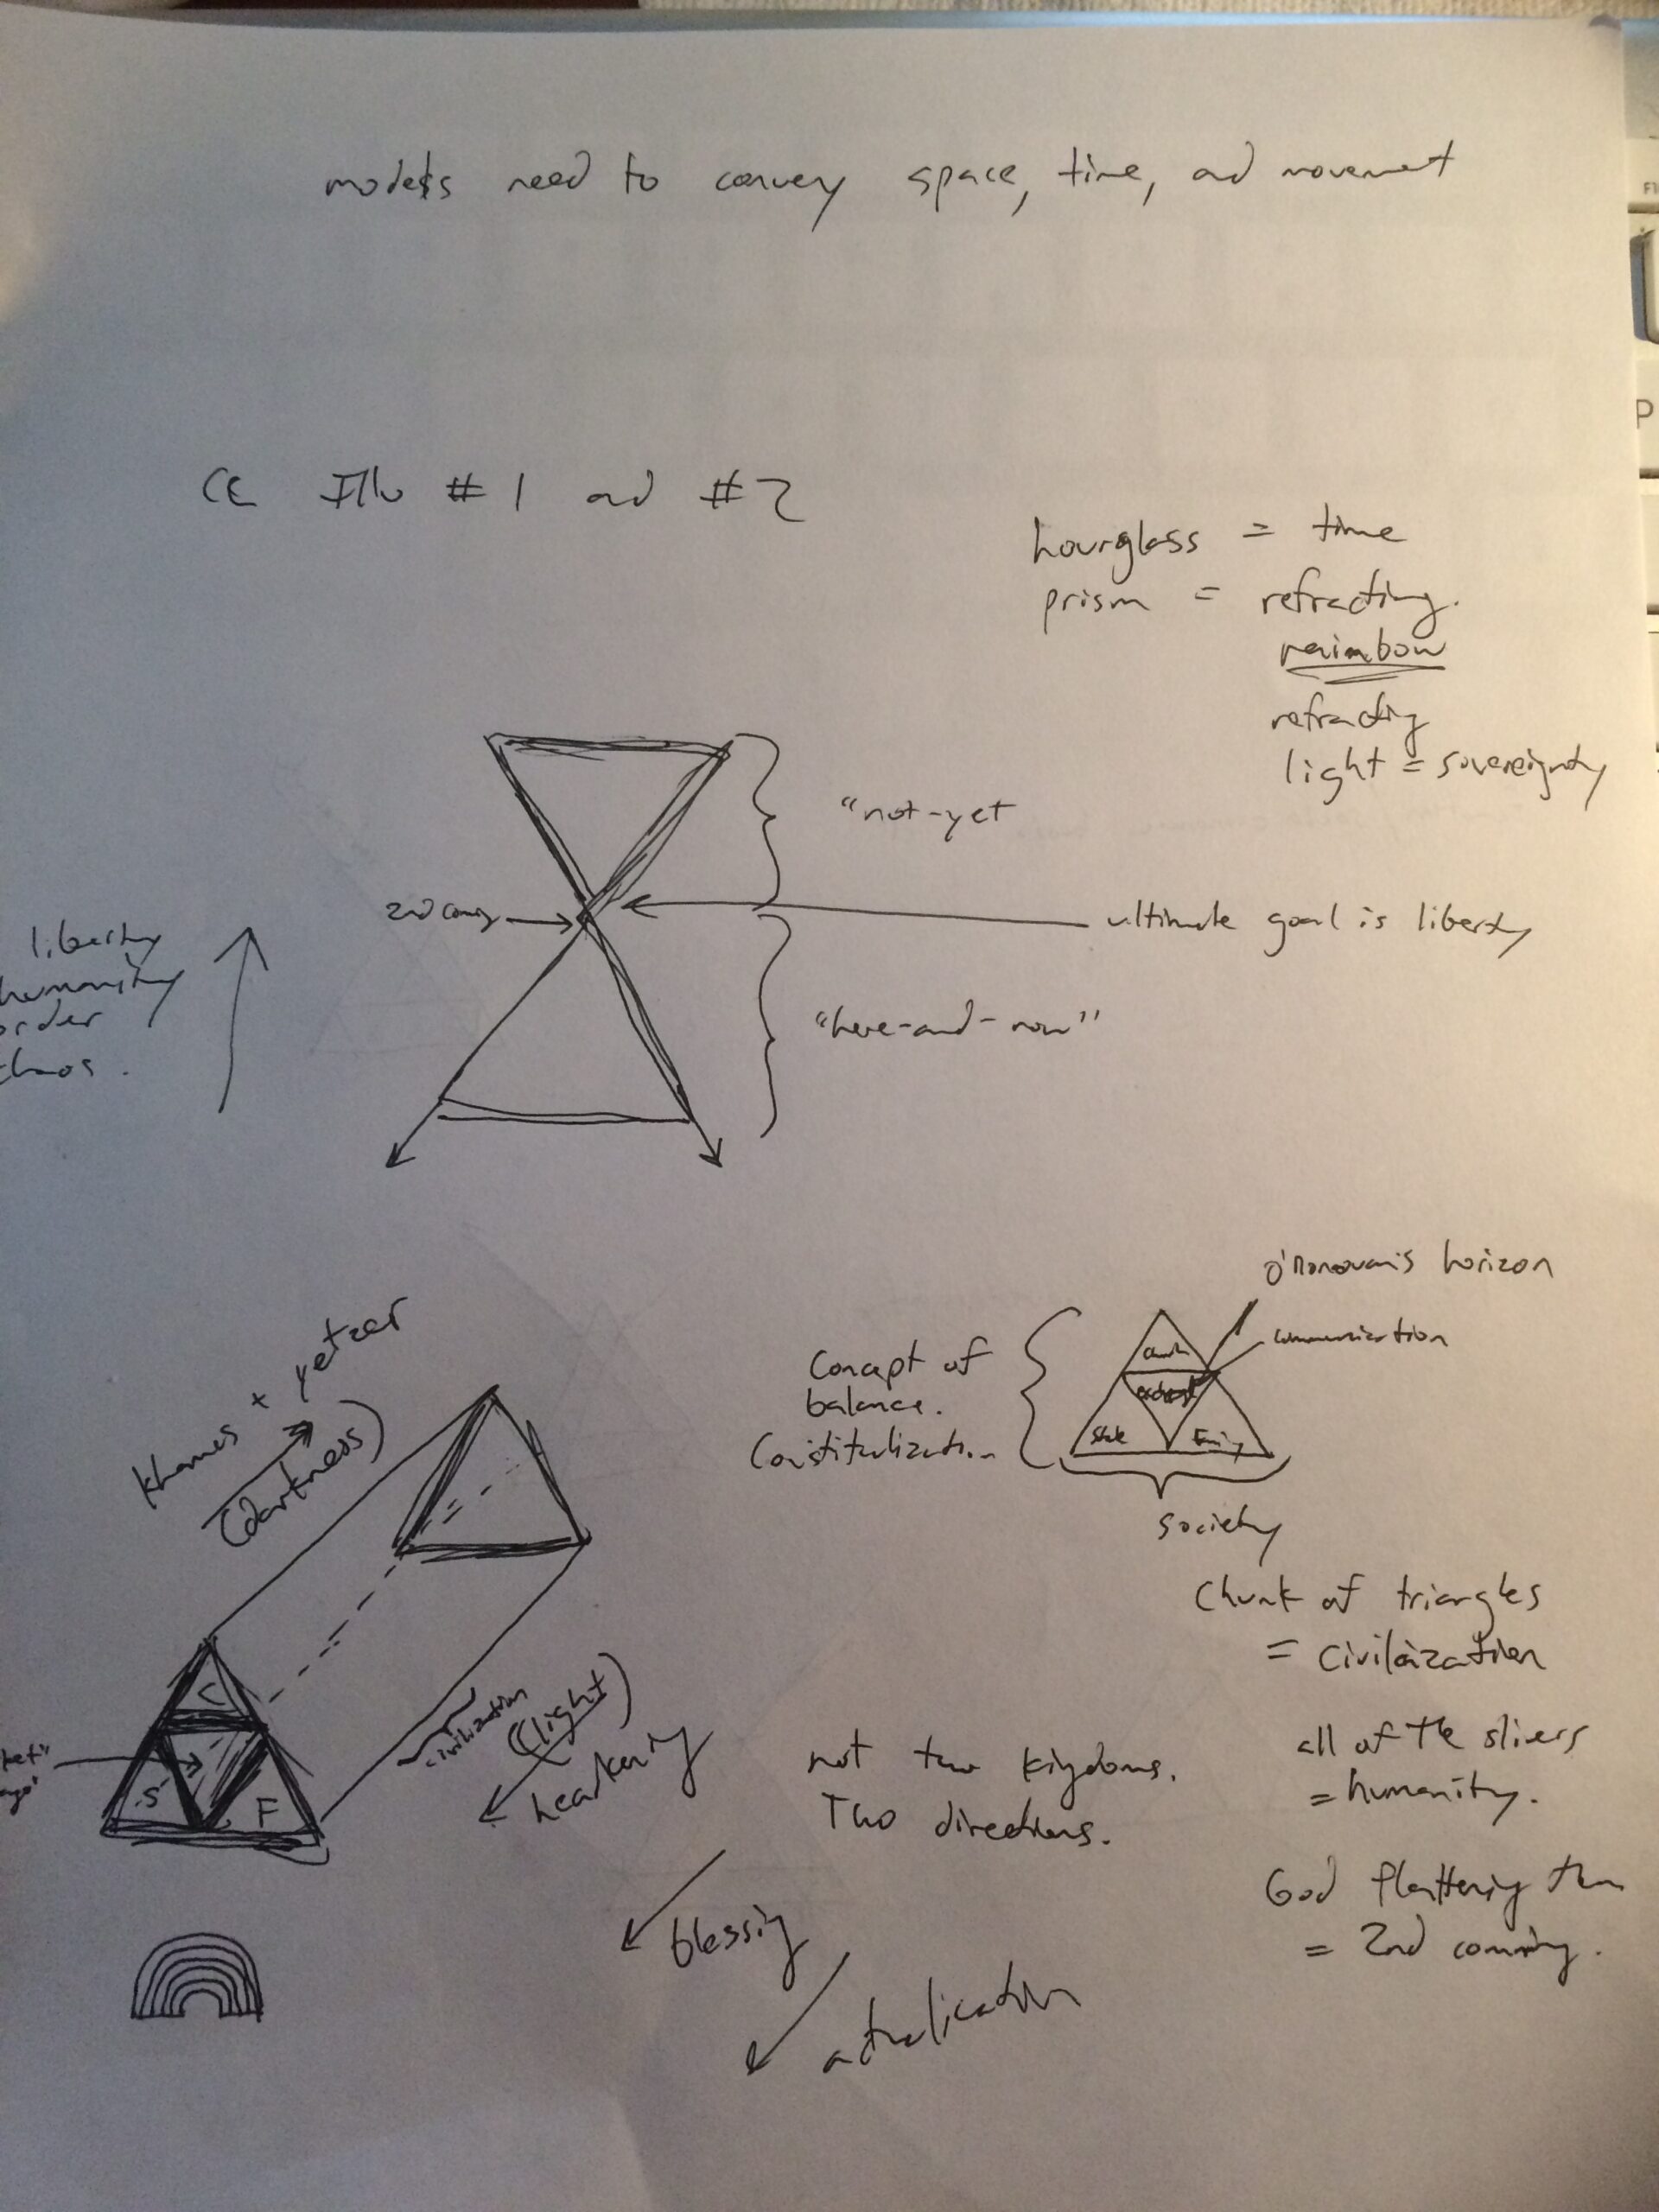 models need to convey space, time, and movement
CE Illu #1 and #2
hourglass = time
prism = refracting.
rainbow
refracting
light = sovereignty
"not-yet
2nd coming
ultimate goal is liberty
liberty
humanity
order
chaos.
"here-and-now"
O'Donovan's horizon
communication
Concept of
balance.
church
State
Family
society
khamas + yetzer
(darkness)
Chunk of triangles
= civilization
C
S
F
civilization
(light)
hearkening
not two kingdoms.
Two directions.
all of the slivers
= humanity.
God flattening them
= 2nd coming.
blessing
P